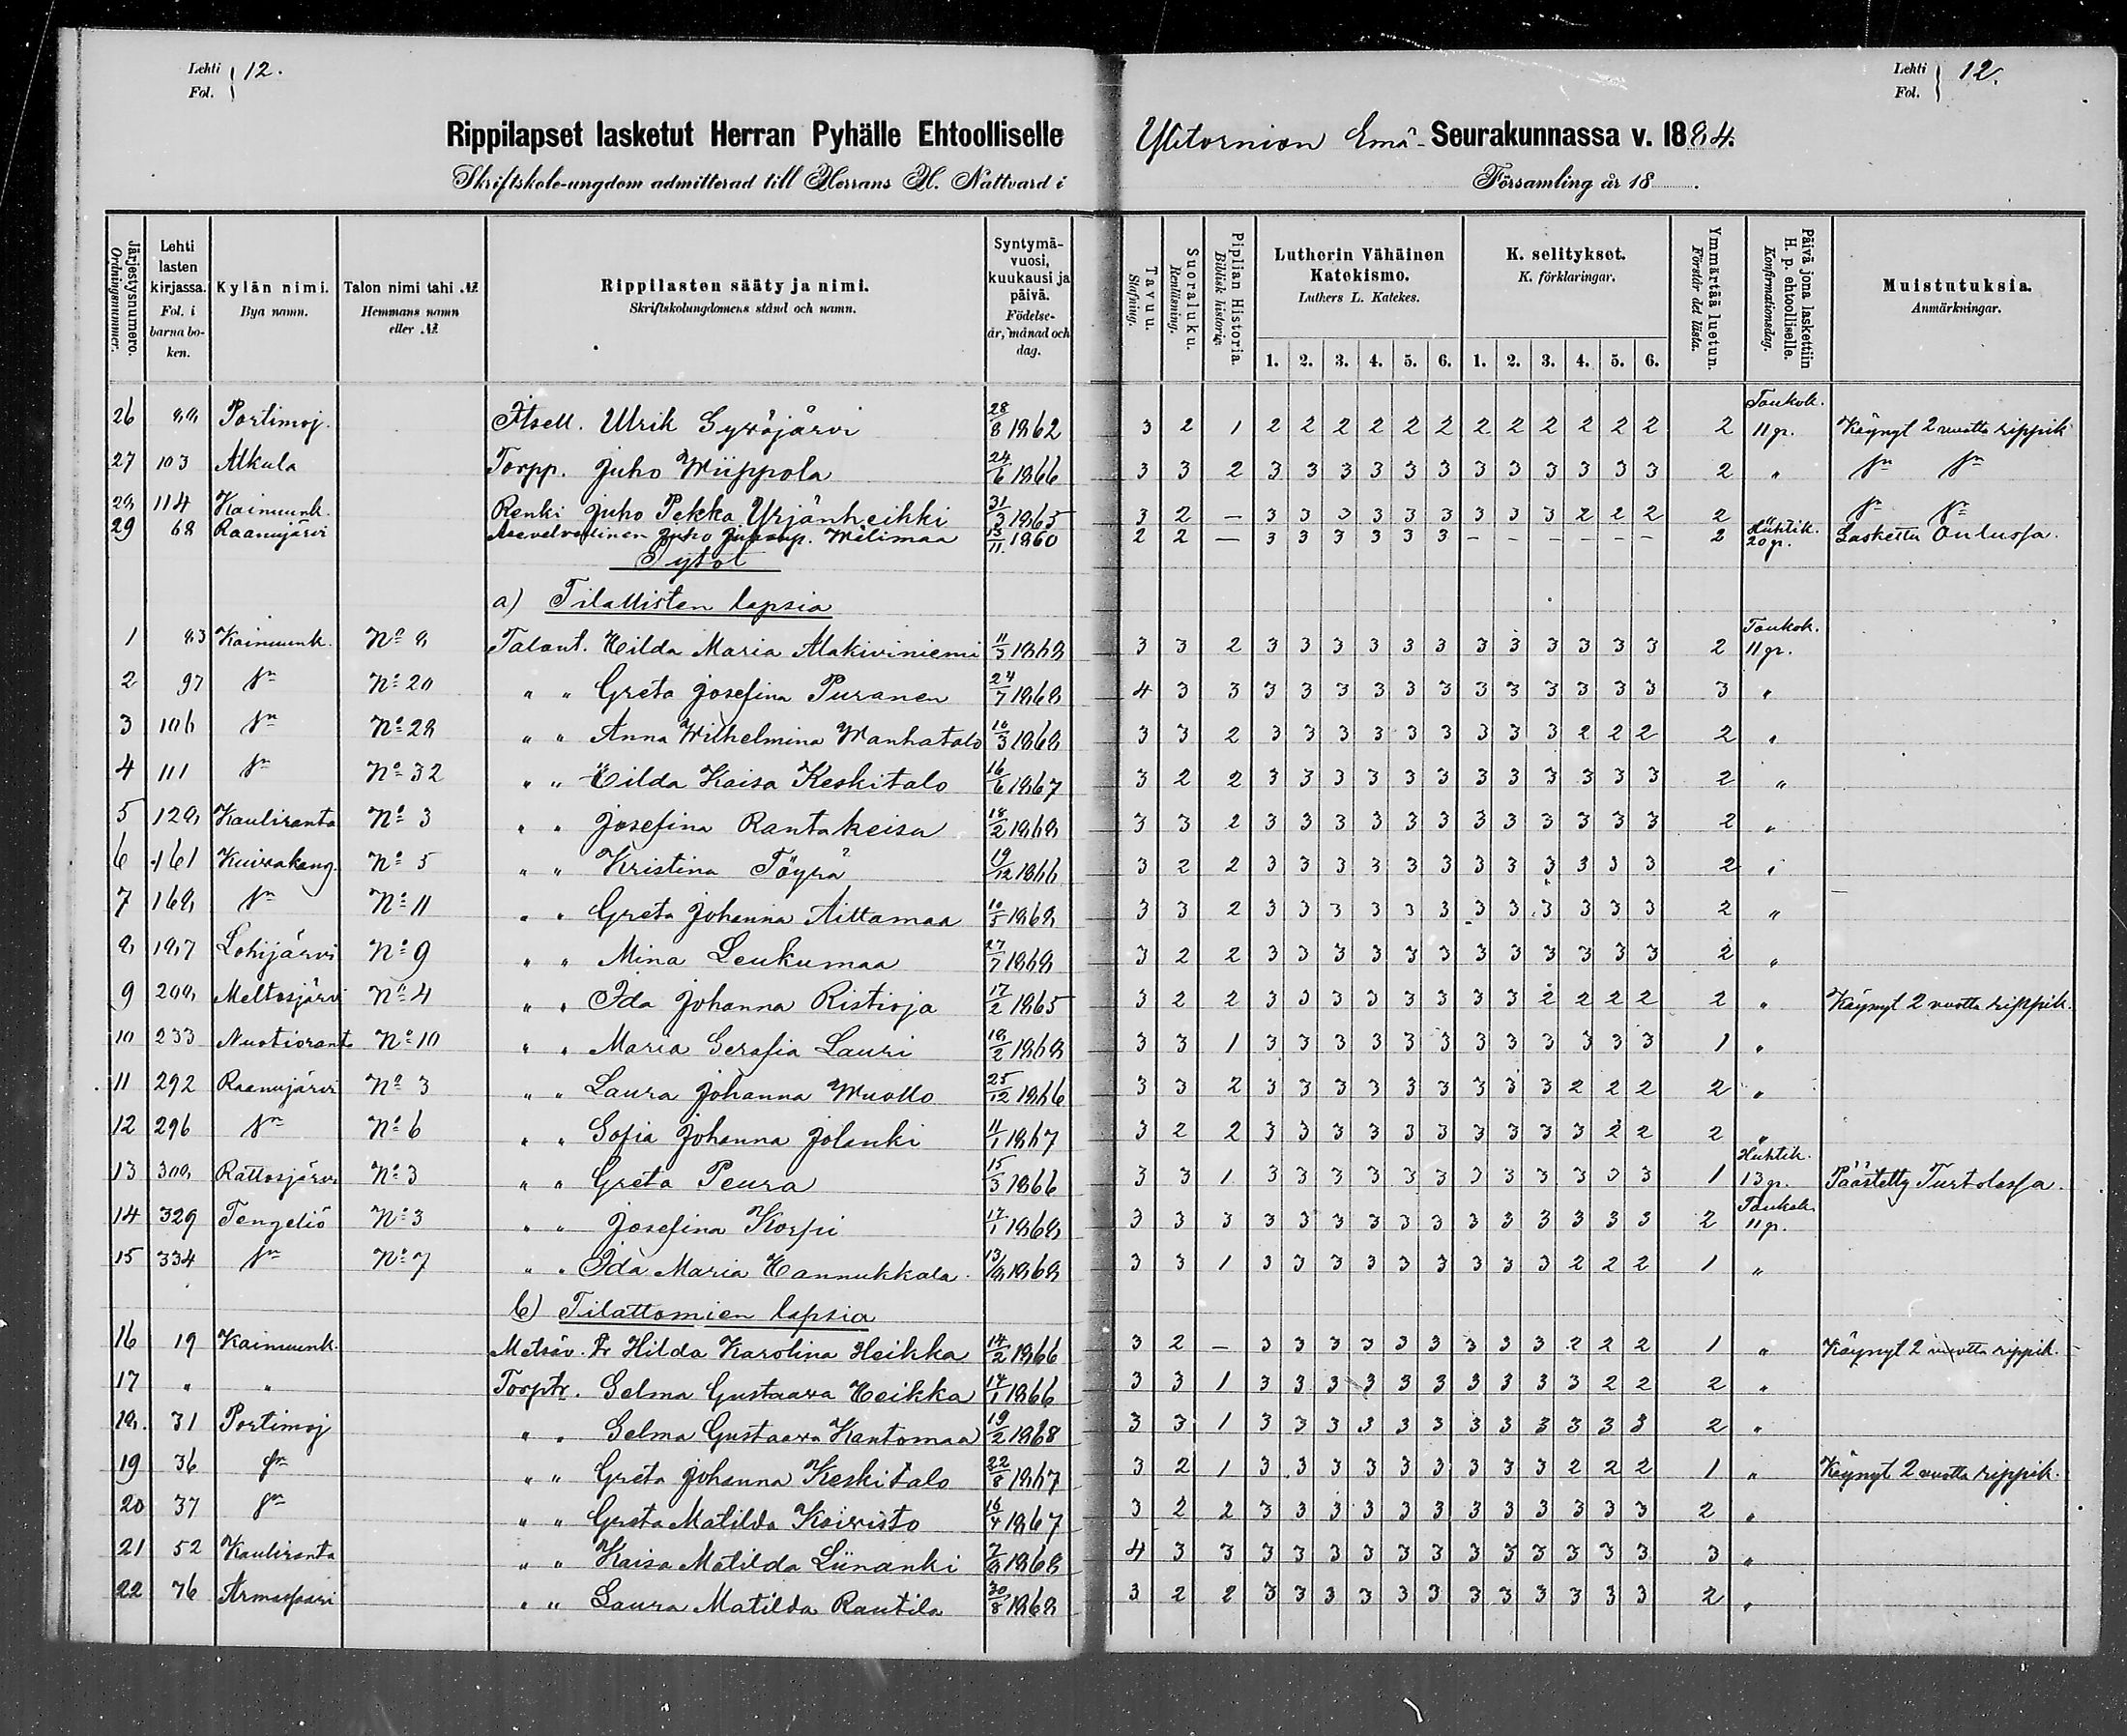 Lehti Fol. 12.
Lehti Fol. 12.
Rippilapset lasketut Herran Pyhälle Ehtoolliselle Ylitornion Emä-Seurakunnassa v. 1884.
Skriftskole-ungdom admitterad till Herrans H. Nattvard i Församling år 18 .
Järjestysnumero. Ordningsnummer. | Lehti lasten kirjassa. Fol. i barna boken. | Kylän nimi. Bya namn. | Talon nimi tahi №. Hemmans namn eller №. | Rippilasten sääty ja nimi. Skriftskolungdomens stånd och namn. | Syntymävuosi, kuukausi ja päivä. Födelseår, månad och dag. | Tavuu. Stafning. | Suoraluku. Renläsning. | Piplian Historia. Biblisk historie. | Lutherin Vähäinen Katekismo. Luthers L. Katekes. | K. selitykset. K. förklaringar. | Ymmärtää luetun. Förstår det lästa. | Päivä jona laskettiin H. p. ehtoolliselle. Konfirmationsdag. | Muistutuksia. Anmärkningar.
1. 2. 3. 4. 5. 6. 1. 2. 3. 4. 5. 6.
26 88 Portimoj. Itsell. Ulrik Syväjärvi 28/8 1862 3 2 1 2 2 2 2 2 2 2 2 2 2 2 2 2 Toukok. 11 p. Käynyt 2 vuotta rippik
27 103 Alkula Torpp. Juho Wiippola 24/6 1866 3 3 2 3 3 3 3 3 3 3 3 3 3 3 3 2 " Sn Sn
28 114 Kainuunk. Renki Juho Pekka Yrjänheikki 31/3 1865 3 2 — 3 3 3 3 3 3 3 3 3 2 2 2 2 Sn Sn
29 68 Raanujärvi Asevelvollinen Juho Juhonp. Wilimaa 13/11 1860 2 2 — 3 3 3 3 3 3 - - - - - - 2 Huhtik. 20 p. Laskettu Oulussa.
Tytöt
a) Tilallisten lapsia
1 83 Kainuunk. No 8 Talont. Hilda Maria Alakiviniemi 11/3 1868 3 3 2 3 3 3 3 3 3 3 3 3 3 3 3 2 Toukok. 11 p.
2 97 Sn No 20 " " Greta Josefina Puranen 24/7 1868 4 3 3 3 3 3 3 3 3 3 3 3 3 3 3 3 "
3 106 Sn No 28 " " Anna Wilhelmina Wanhatalo 10/3 1868 3 3 2 3 3 3 3 3 3 3 3 3 2 2 2 2 "
4 111 Sn No 32 " " Hilda Kaisa Keskitalo 16/6 1867 3 2 2 3 3 3 3 3 3 3 3 3 3 3 3 2 "
5 128 Kauliranta No 3 " " Josefina Rantakeisu 18/2 1868 3 3 2 3 3 3 3 3 3 3 3 3 3 3 3 2 "
6 161 Kuivakang. No 5 " " Kristina Töyrä 19/12 1866 3 2 2 3 3 3 3 3 3 3 3 3 3 3 3 2 "
7 168 Sn No 11 " " Greta Johanna Aittamaa 10/5 1868 3 3 2 3 3 3 3 3 3 3 3 3 3 3 3 2 "
8 187 Lohijärvi No 9 " " Mina Leukumaa 27/7 1868 3 2 2 3 3 3 3 3 3 3 3 3 3 3 3 2 "
9 208 Meltosjärvi No 4 " " Ida Johanna Ristioja 17/2 1865 3 2 2 3 3 3 3 3 3 3 3 2 2 2 2 2 " Käynyt 2 vuotta rippik.
10 233 Nuotioranta No 10 " " Maria Serafia Lauri 18/2 1868 3 3 1 3 3 3 3 3 3 3 3 3 3 3 3 1 "
11 292 Raanujärvi No 3 " " Laura Johanna Wuollo 25/12 1866 3 3 2 3 3 3 3 3 3 3 3 3 2 2 2 2 "
12 296 Sn No 6 " " Sofia Johanna Jolanki 11/1 1867 3 2 2 3 3 3 3 3 3 3 3 3 3 2 2 2 "
13 308 Rattosjärvi No 3 " " Greta Peura 15/3 1866 3 3 1 3 3 3 3 3 3 3 3 3 3 3 3 1 Huhtik. 13 p. Päästetty Turtolassa.
14 329 Tengeliö No 3 " " Josefina Korpi 17/1 1868 3 3 3 3 3 3 3 3 3 3 3 3 3 3 3 2 Toukok. 11 p.
15 334 Sn No 7 " " Ida Maria Hannukkala. 13/8 1868 3 3 1 3 3 3 3 3 3 3 3 3 2 2 2 1 "
b) Tilattomien lapsia
16 19 Kainuunk. Metsäv. Tr Hilda Karolina Heikka 14/2 1866 3 2 — 3 3 3 3 3 3 3 3 3 2 2 2 1 " Käynyt 2 vuotta rippik.
17 " " Torptr. Selma Gustaava Heikka 14/1 1866 3 3 1 3 3 3 3 3 3 3 3 3 3 2 2 2 "
18. 31 Portimoj " " Selma Gustaava Kantomaa 19/2 1868 3 3 1 3 3 3 3 3 3 3 3 3 3 3 3 2 "
19 36 Sn " " Greta Johanna Keskitalo 22/8 1867 3 2 1 3 3 3 3 3 3 3 3 3 2 2 2 1 " Käynyt 2 vuotta rippik.
20 37 Sn " " Greta Matilda Koivisto 16/4 1867 3 2 2 3 3 3 3 3 3 3 3 3 3 3 3 2 "
21 52 Kauliranta " " Kaisa Matilda Liinanki 7/8 1868 4 3 3 3 3 3 3 3 3 3 3 3 3 3 3 3 "
22 76 Armassaari " " Laura Matilda Rautila 30/8 1868 3 2 2 3 3 3 3 3 3 3 3 3 3 3 3 2 "